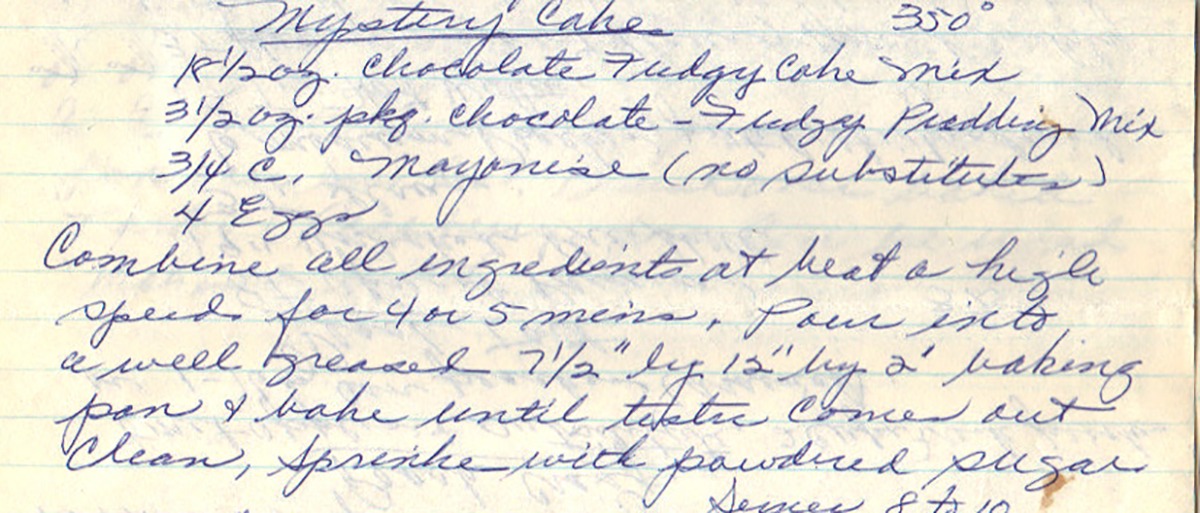 Mystery Cake 350°
18 1/2 oz. Chocolate Fudgy Cake Mix
3 1/2 oz. pkg. Chocolate - Fudgy Pudding Mix
3/4 C. Mayonise (no substitutes)
4 Eggs
Combine all ingredients at beat a high
speed for 4 or 5 mins. Pour into
a well greased 7 1/2" by 12" by 2' baking
pan & bake until tester comes out
Clean, Sprinke with powdered sugar
Serves 8 to 10